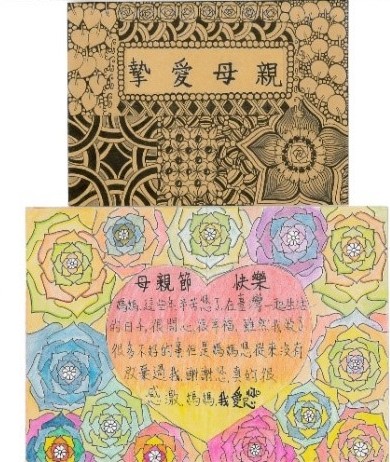 摯愛母親
母親節 快樂
媽媽,這些年辛苦您了,在臺灣一起生活
的日子,很開心很幸福,雖然我做了
很多不好的事但是媽媽您從來沒有
放棄過我,謝謝您,真的很
感激,媽媽,我愛您